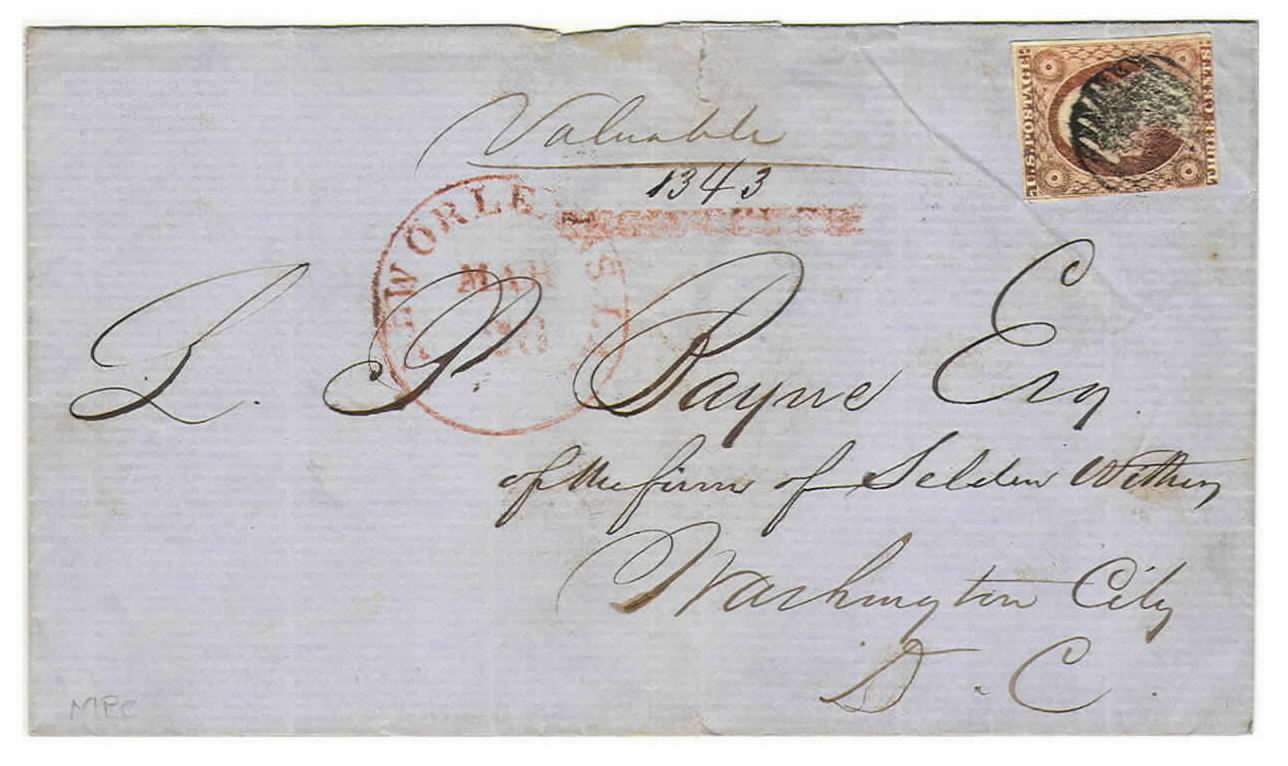 Valuable
1343
U.S. POSTAGE
THREE CENTS
NEW ORLEANS L
MAR
L. P. Payne Esq.
of the firm of Selden Withers
Washington City
D. C.